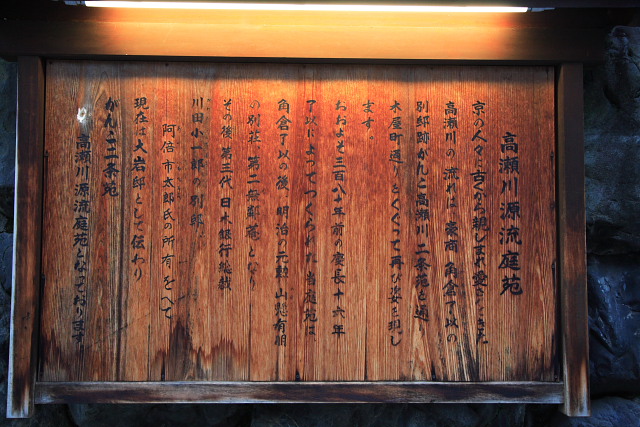 高瀬川源流庭苑
京の人々に古くから親しまれ愛されてきた
高瀬川の流れは、豪商 角倉了以の
別邸跡がんこ高瀬川二条苑を通
木屋町通りをくぐって再び姿を現し
ます。
おおよそ三百八十年前の慶長十六年
了以によってつくられた当庭苑は
角倉了以の後 明治の元勲 山県有朋
の別荘 第二無鄰菴となり
その後 第三代日本銀行総裁
川田小一郎の別邸、
阿倍市太郎氏の所有をへて
現在は大岩邸として伝わり
がんこ二条苑
高瀬川源流庭苑となっております